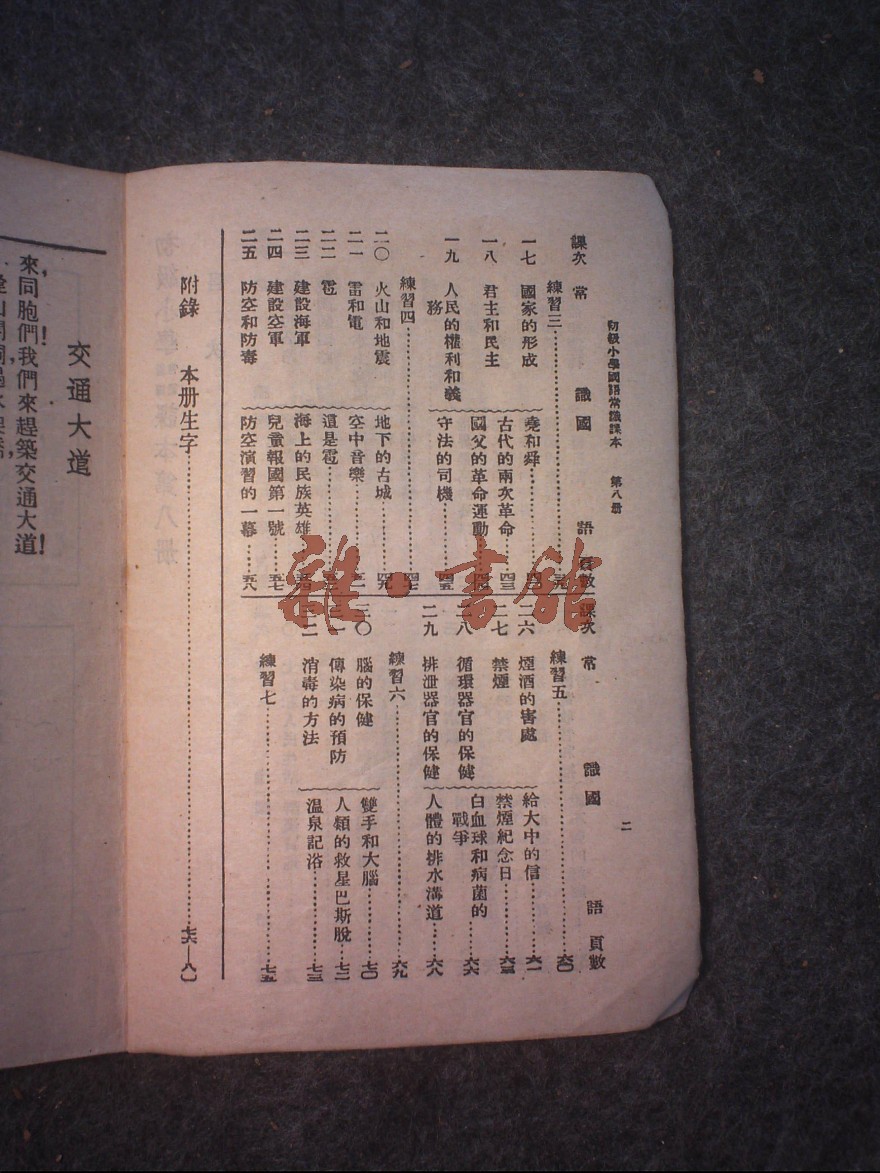 初級小學國語常識課本 第八册
二
課次 常識 國語 頁數
練習三
一七 國家的形成 堯和舜
一八 君主和民主 古代的兩次革命 四三
國父的革命運動
一九 人民的權利和義務 守法的司機 四五
練習四 四七
二〇 火山和地震 地下的古城 四九
二一 雷和電 空中音樂
二二 雹 還是雹
二三 建設海軍 海上的民族英雄
二四 建設空軍 兒童報國第一號 五七
二五 防空和防毒 防空演習的一幕 五八
課次 常識 國語 頁數
練習五 六〇
二六 煙酒的害處 給大中的信 六一
二七 禁煙 禁煙紀念日 六三
二八 循環器官的保健 白血球和病菌的戰爭 六六
二九 排泄器官的保健 人體的排水溝道 六八
練習六 六九
三〇 腦的保健 雙手和大腦 七〇
三一 傳染病的預防 人類的救星巴斯脫 七二
三二 消毒的方法 溫泉記浴 七三
練習七 七五
附錄 本册生字 七六—八〇
交通大道
來同胞們!我們來趕築交通大道!
雜·書館